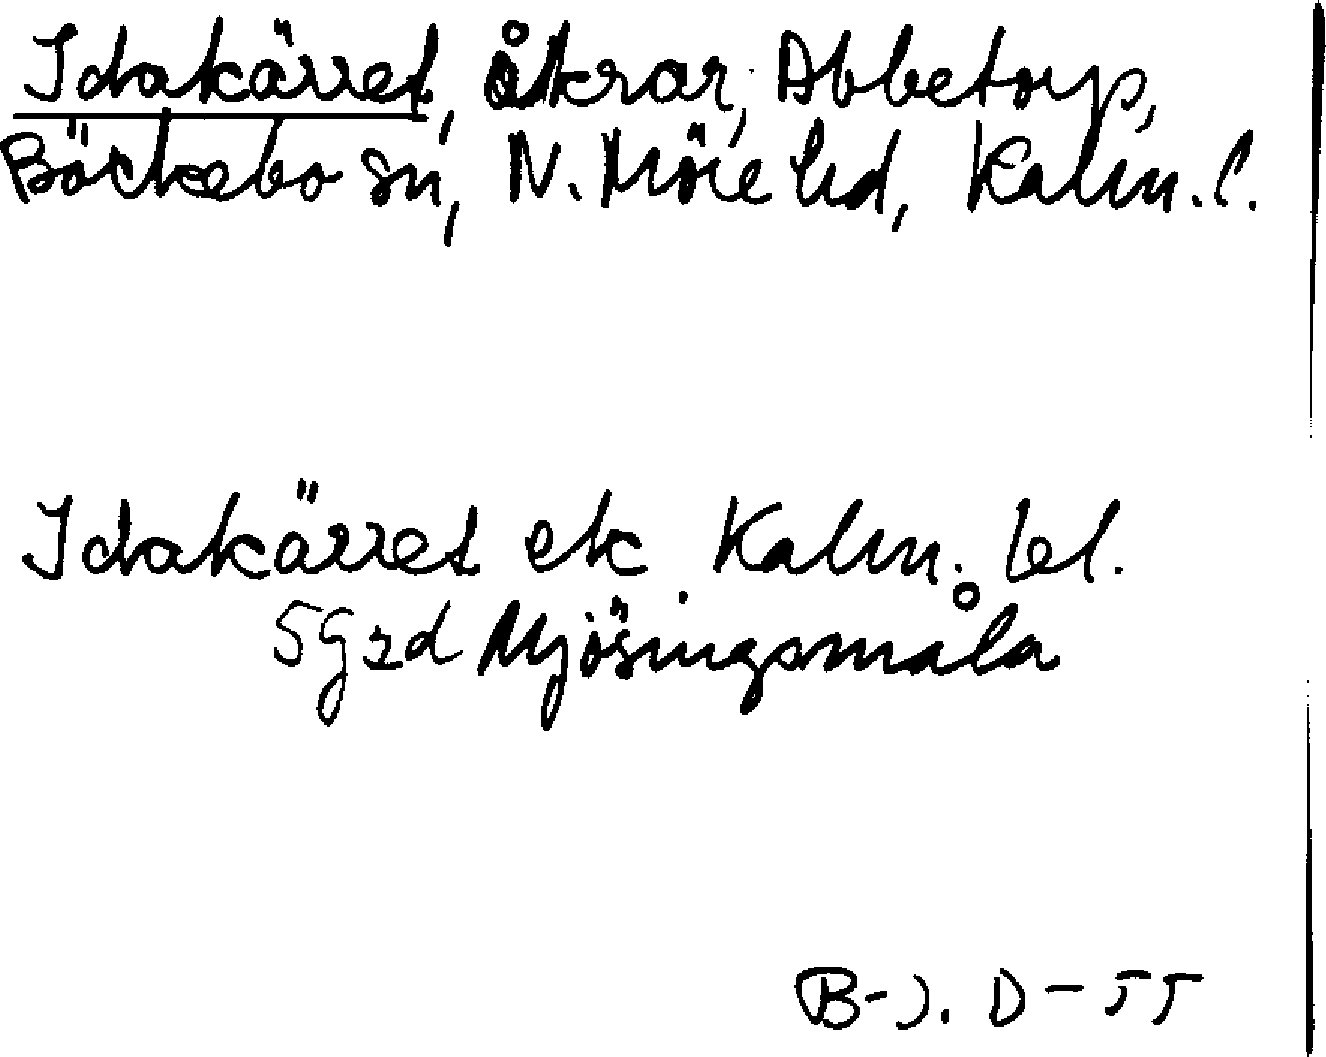 Idakärret, åkrar, Abbetorp,
Bäckebo sn, N. Möre hd, Kalm. l.
Idakärret ek Kalm. bl.
5 G 2d Mjösingsmåla
B-J. D-55